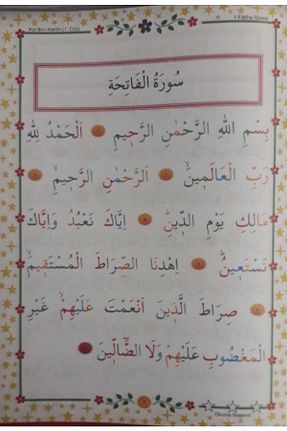 Kur'ân-ı Kerîm (1. Cüz)
1.Fâtiha Sûresi
سُورَةُ الْفَاتِحَةِ
بِسْمِ اللهِ الرَّحْمٰنِ الرَّحٖيمِ اَلْحَمْدُ لِلّٰهِ
رَبِّ الْعَالَمٖينَۙ اَلرَّحْمٰنِ الرَّحٖيمِۙ
مَالِكِ يَوْمِ الدّٖينِؕ اِيَّاكَ نَعْبُدُ وَاِيَّاكَ
نَسْتَعٖينُؕ اِهْدِنَا الصِّرَاطَ الْمُسْتَقٖيمَۙ
صِرَاطَ الَّذٖينَ اَنْعَمْتَ عَلَيْهِمْۙ غَيْرِ
الْمَغْضُوبِ عَلَيْهِمْ وَلَا الضَّٓالّٖينَ